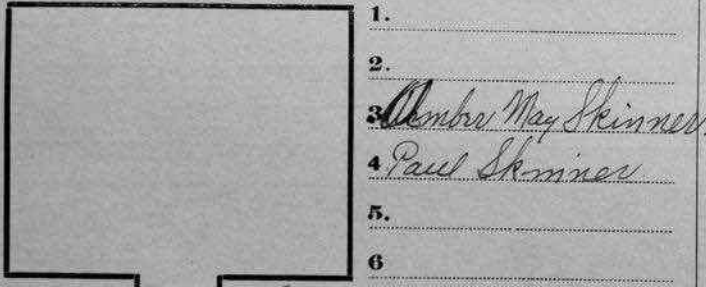 1.
2.
3. Amber May Skinner
4 Paul Skinner
5.
6